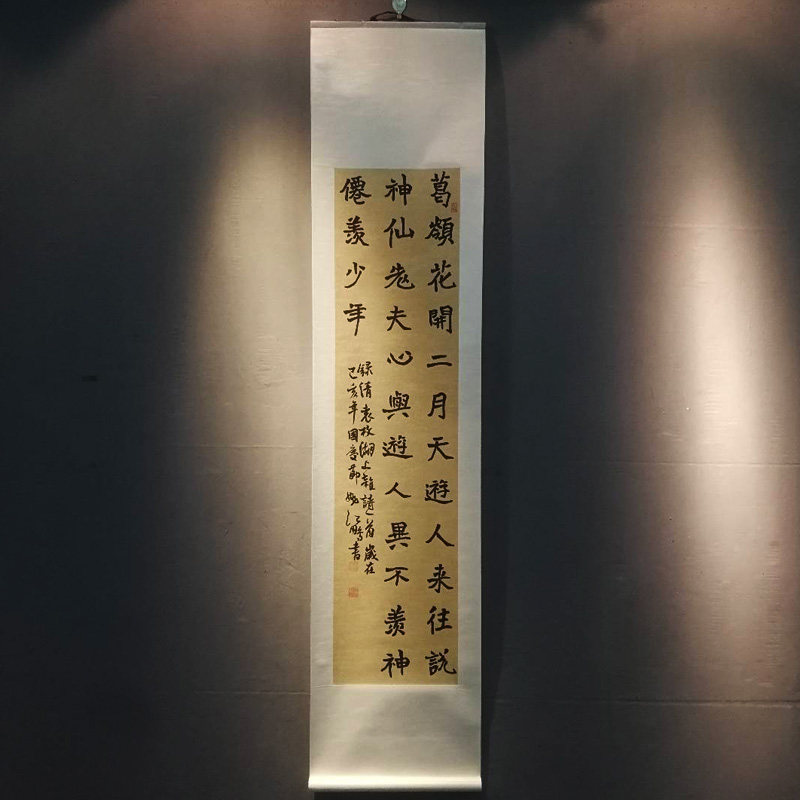 葛嶺花開二月天遊人来往説
神仙老夫心與遊人異不羨神
僊羨少年
録清袁枚湖上雜詩一首歲在
己亥年國慶節 江鵬書